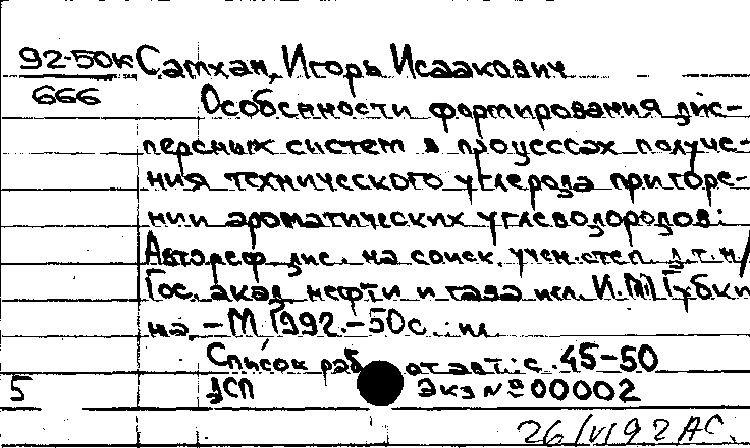 92-50к Сатхан, Игорь Исаакович
666 Особенности формирования дис-
персных систем в процессах получе-
ния технического углерода при горе-
нии ароматических углеводородов:
Автореф. дис. на соиск. учен. степ. д.т.н/
Гос. акад. нефти и газа им. И.М. Губки
на. - М. 1992. - 50с.: ил.
Список раб. от авт.: с. 45-50
5 ДСП Экз № 00002
26/VI 92 АС.